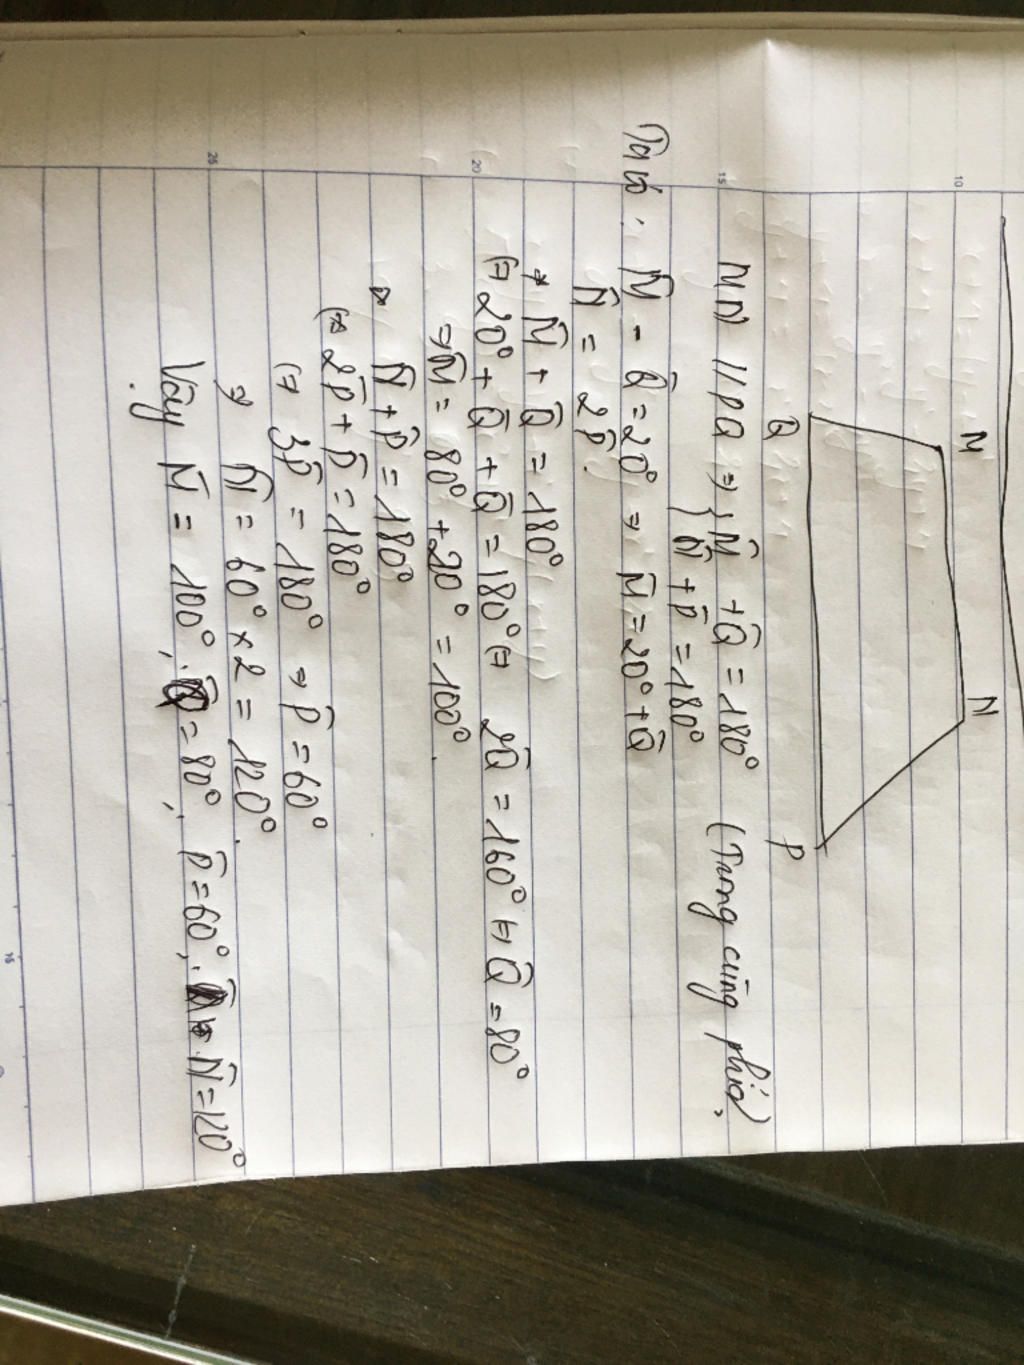 M
N
Q
P
MN // PQ => { M̂ + Q̂ = 180°
N̂ + P̂ = 180°
(Trong cùng phía)
M̂ - Q̂ = 20° => M̂ = 20° + Q̂
N̂ = 2P̂.
* M̂ + Q̂ = 180°
(=) 20° + Q̂ + Q̂ = 180° (=) 2Q̂ = 160° (=) Q̂ = 80°
=> M̂ = 80° + 20° = 100°
N̂ + P̂ = 180°
(=) 2P̂ + P̂ = 180°
(=) 3P̂ = 180° => P̂ = 60°
=> N̂ = 60° × 2 = 120°.
Vậy M̂ = 100°, Q̂ = 80°, P̂ = 60°, N̂ = 120°
10
15
20
25
15